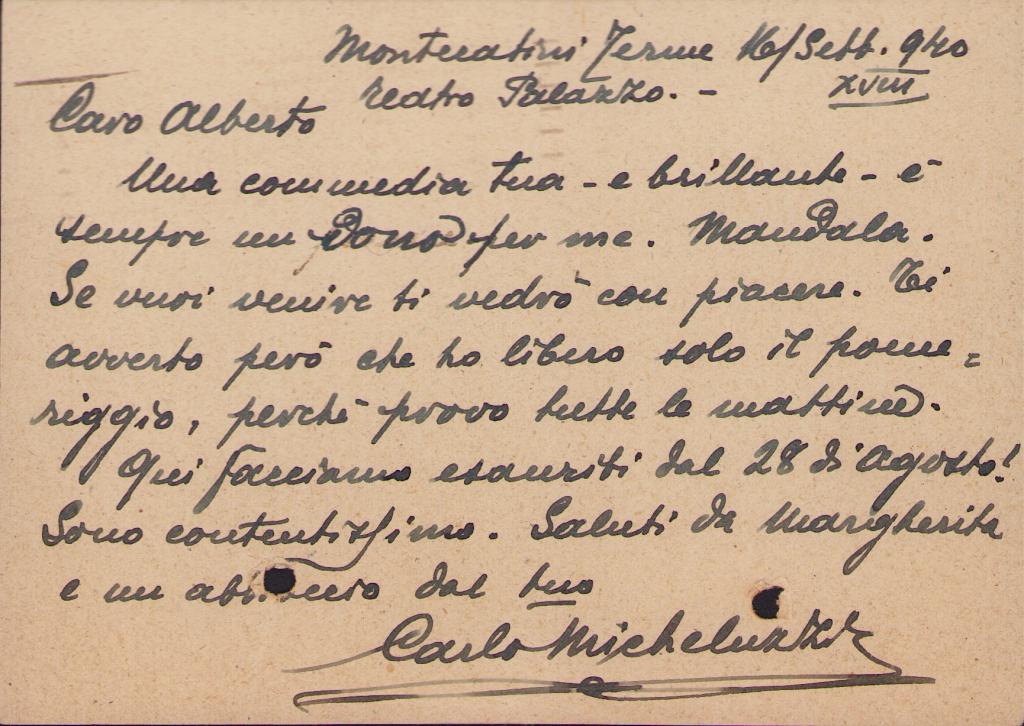 Montecatini Terme 16/Sett. 940
Teatro Palazzo. - XVIII
Caro Alberto
Una commedia tua - e brillante - è
sempre un dono per me. Mandala.
Se vuoi venire ti vedrò con piacere. Ti
avverto però che ho libero solo il pome=
riggio, perchè provo tutte le mattine.
Qui facciamo esauriti dal 28 di Agosto!
Sono contentissimo. Saluti da Margherita
e un abbraccio dal tuo
Carlo Micheluzzi